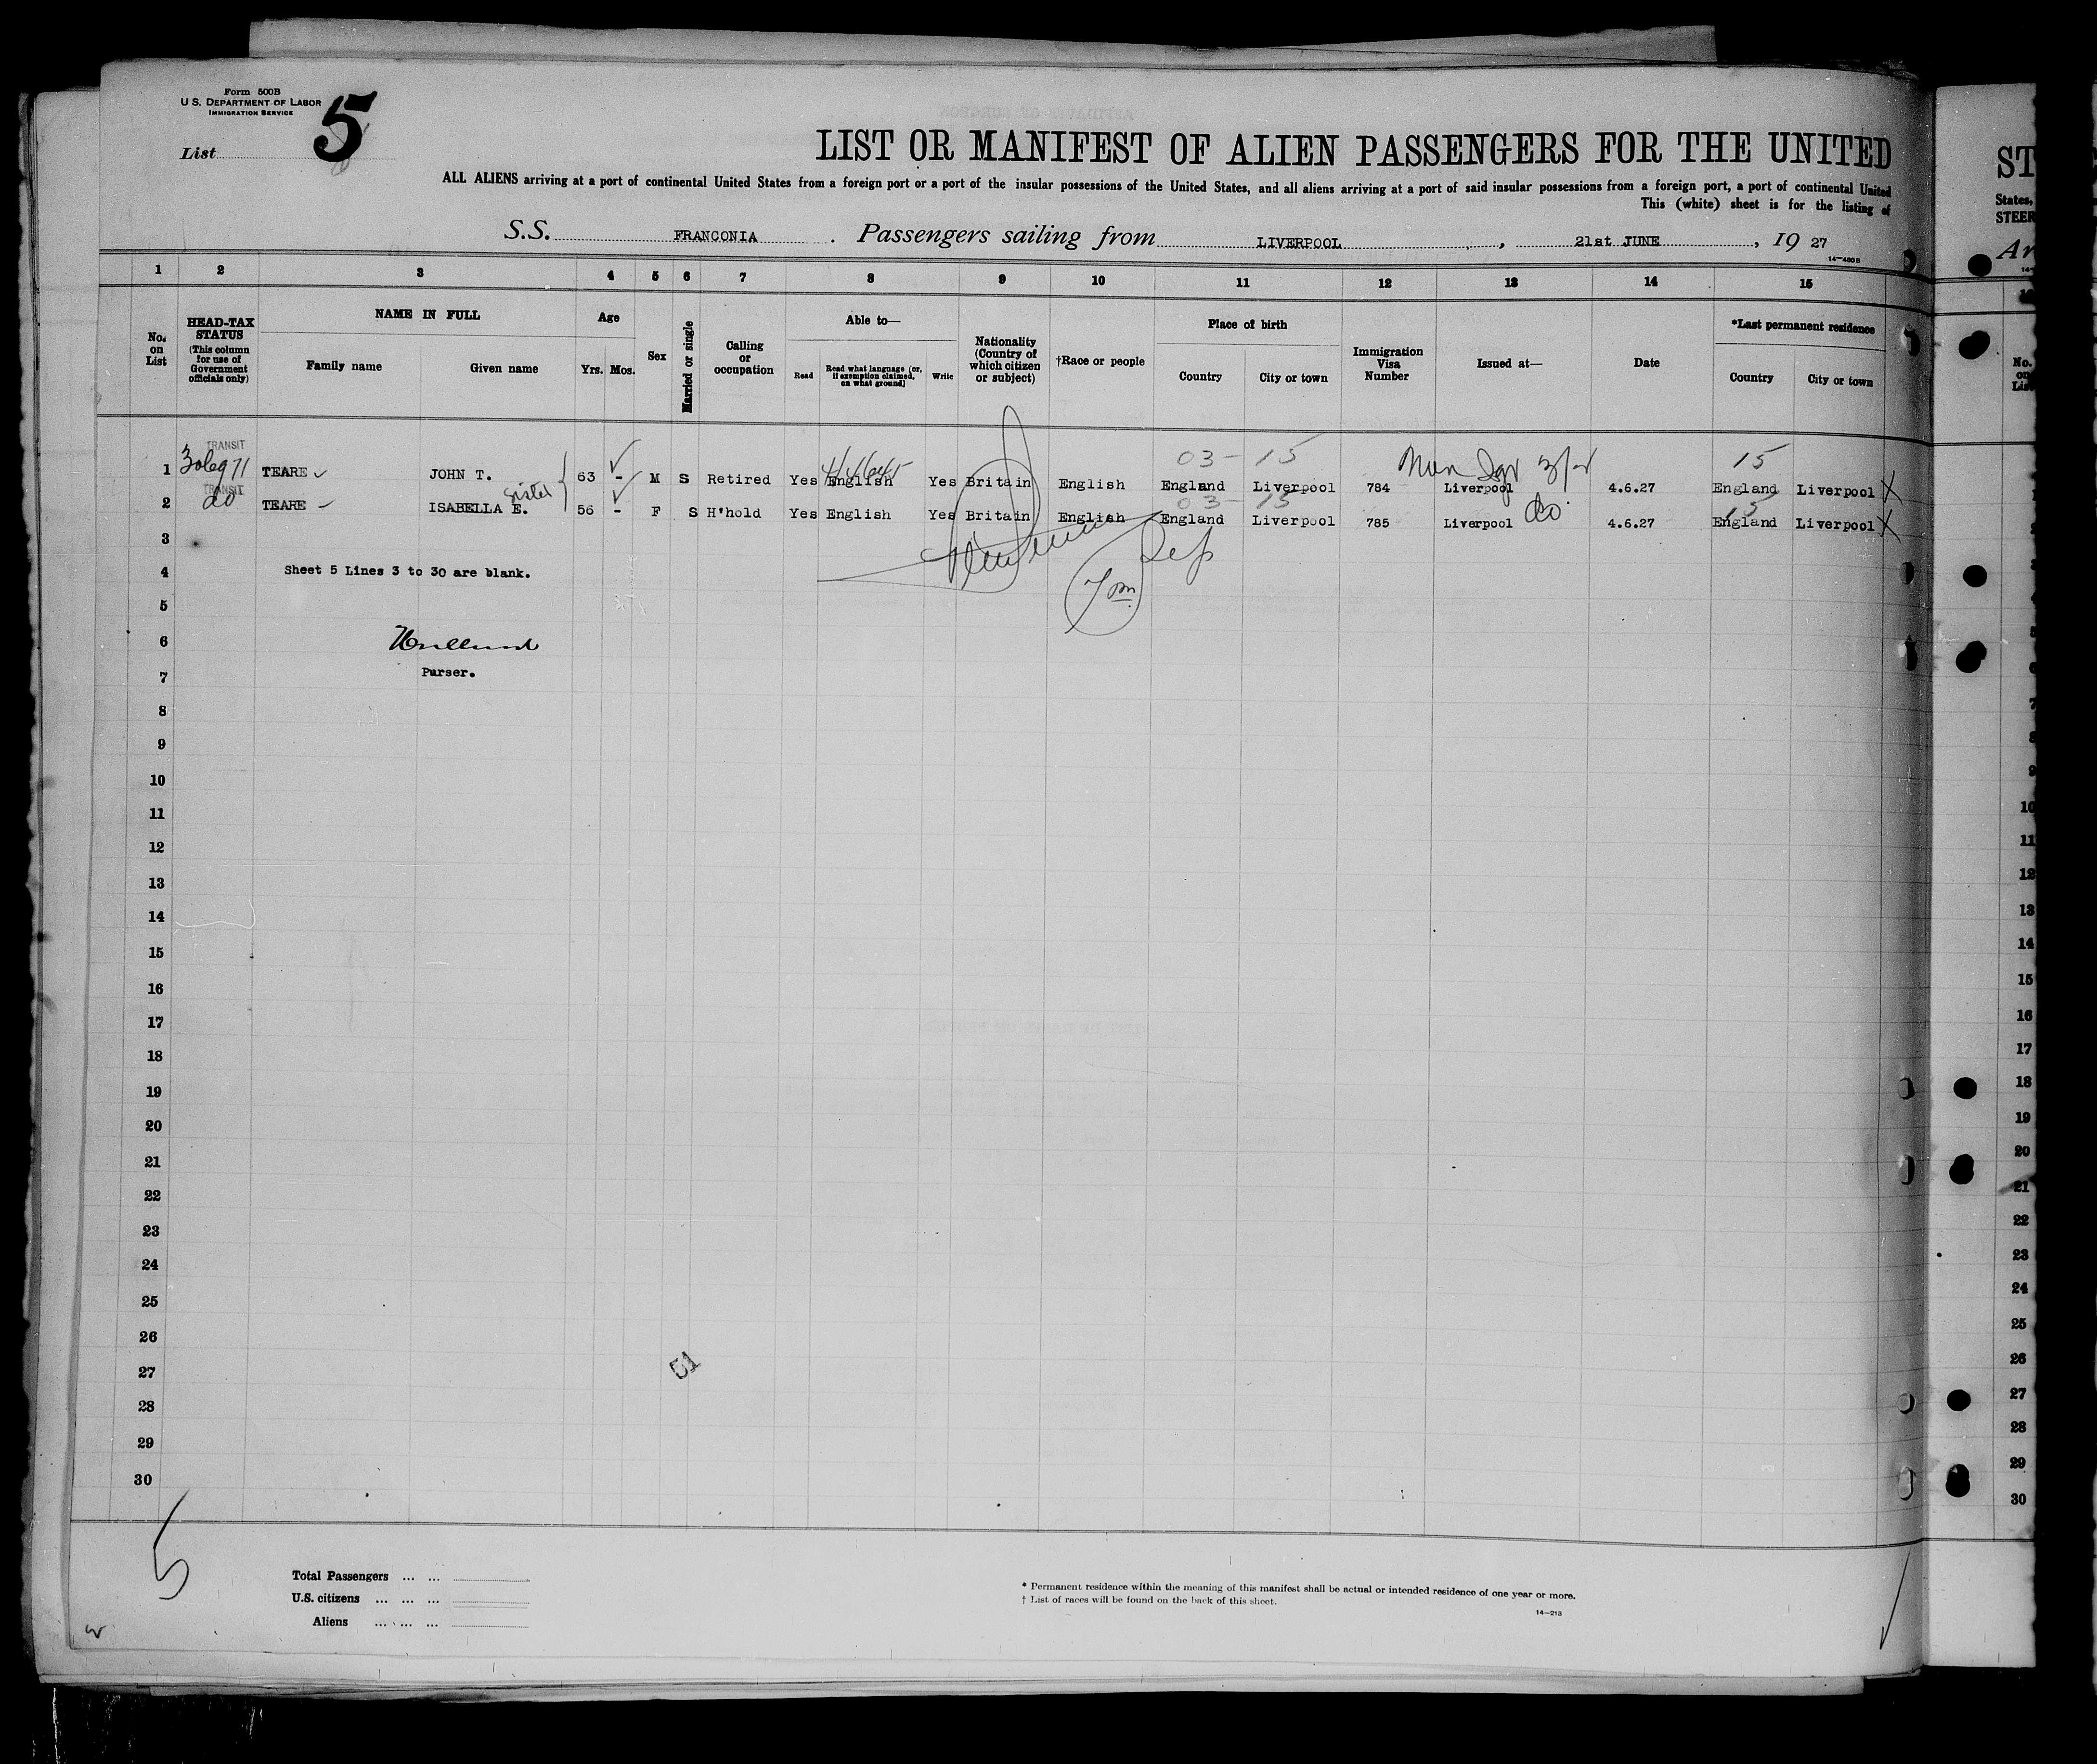 Form 500B
U.S. DEPARTMENT OF LABOR
IMMIGRATION SERVICE
List 5
LIST OR MANIFEST OF ALIEN PASSENGERS FOR THE UNITED
ALL ALIENS arriving at a port of continental United States from a foreign port or a port of the insular possessions of the United States, and all aliens arriving at a port of said insular possessions from a foreign port, a port of continental United
This (white) sheet is for the listing of
S.S. FRANCONIA. Passengers sailing from LIVERPOOL, 21st JUNE, 19 27
14-480B
1 2 3 4 5 6 7 8 9 10 11 12 13 14 15
No. on List
HEAD-TAX STATUS (This column for use of Government officials only)
NAME IN FULL
Family name
Given name
Age
Yrs. Mos.
Sex
Married or single
Calling or occupation
Able to—
Read
Read what language (or, if exemption claimed, on what ground)
Write
Nationality (Country of which citizen or subject)
†Race or people
Place of birth
Country
City or town
Immigration Visa Number
Issued at—
Date
*Last permanent residence
Country
City or town
TRANSIT 03- 15 15
1 TEARE ✓ JOHN T. 63 - M S Retired Yes English Yes Britain English England Liverpool 784 Liverpool 4.6.27 England Liverpool X
TRANSIT do sister 03- 15 do 15
2 TEARE ISABELLA E. 56 - F S H'hold Yes English Yes Britain English England Liverpool 785 Liverpool 4.6.27 England Liverpool X
3
4 Sheet 5 Lines 3 to 30 are blank.
5
6
7 Purser.
8
9
10
11
12
13
14
15
16
17
18
19
20
21
22
23
24
25
26
27 51
28
29
30
5
Total Passengers ... ...
U.S. citizens ... ... ...
Aliens ... ... ...
* Permanent residence within the meaning of this manifest shall be actual or intended residence of one year or more.
† List of races will be found on the back of this sheet.
14-213
ST
States,
STEER
Ar
No. on Lis
10
11
12
13
14
15
16
17
18
19
20
21
22
23
24
25
26
27
28
29
30